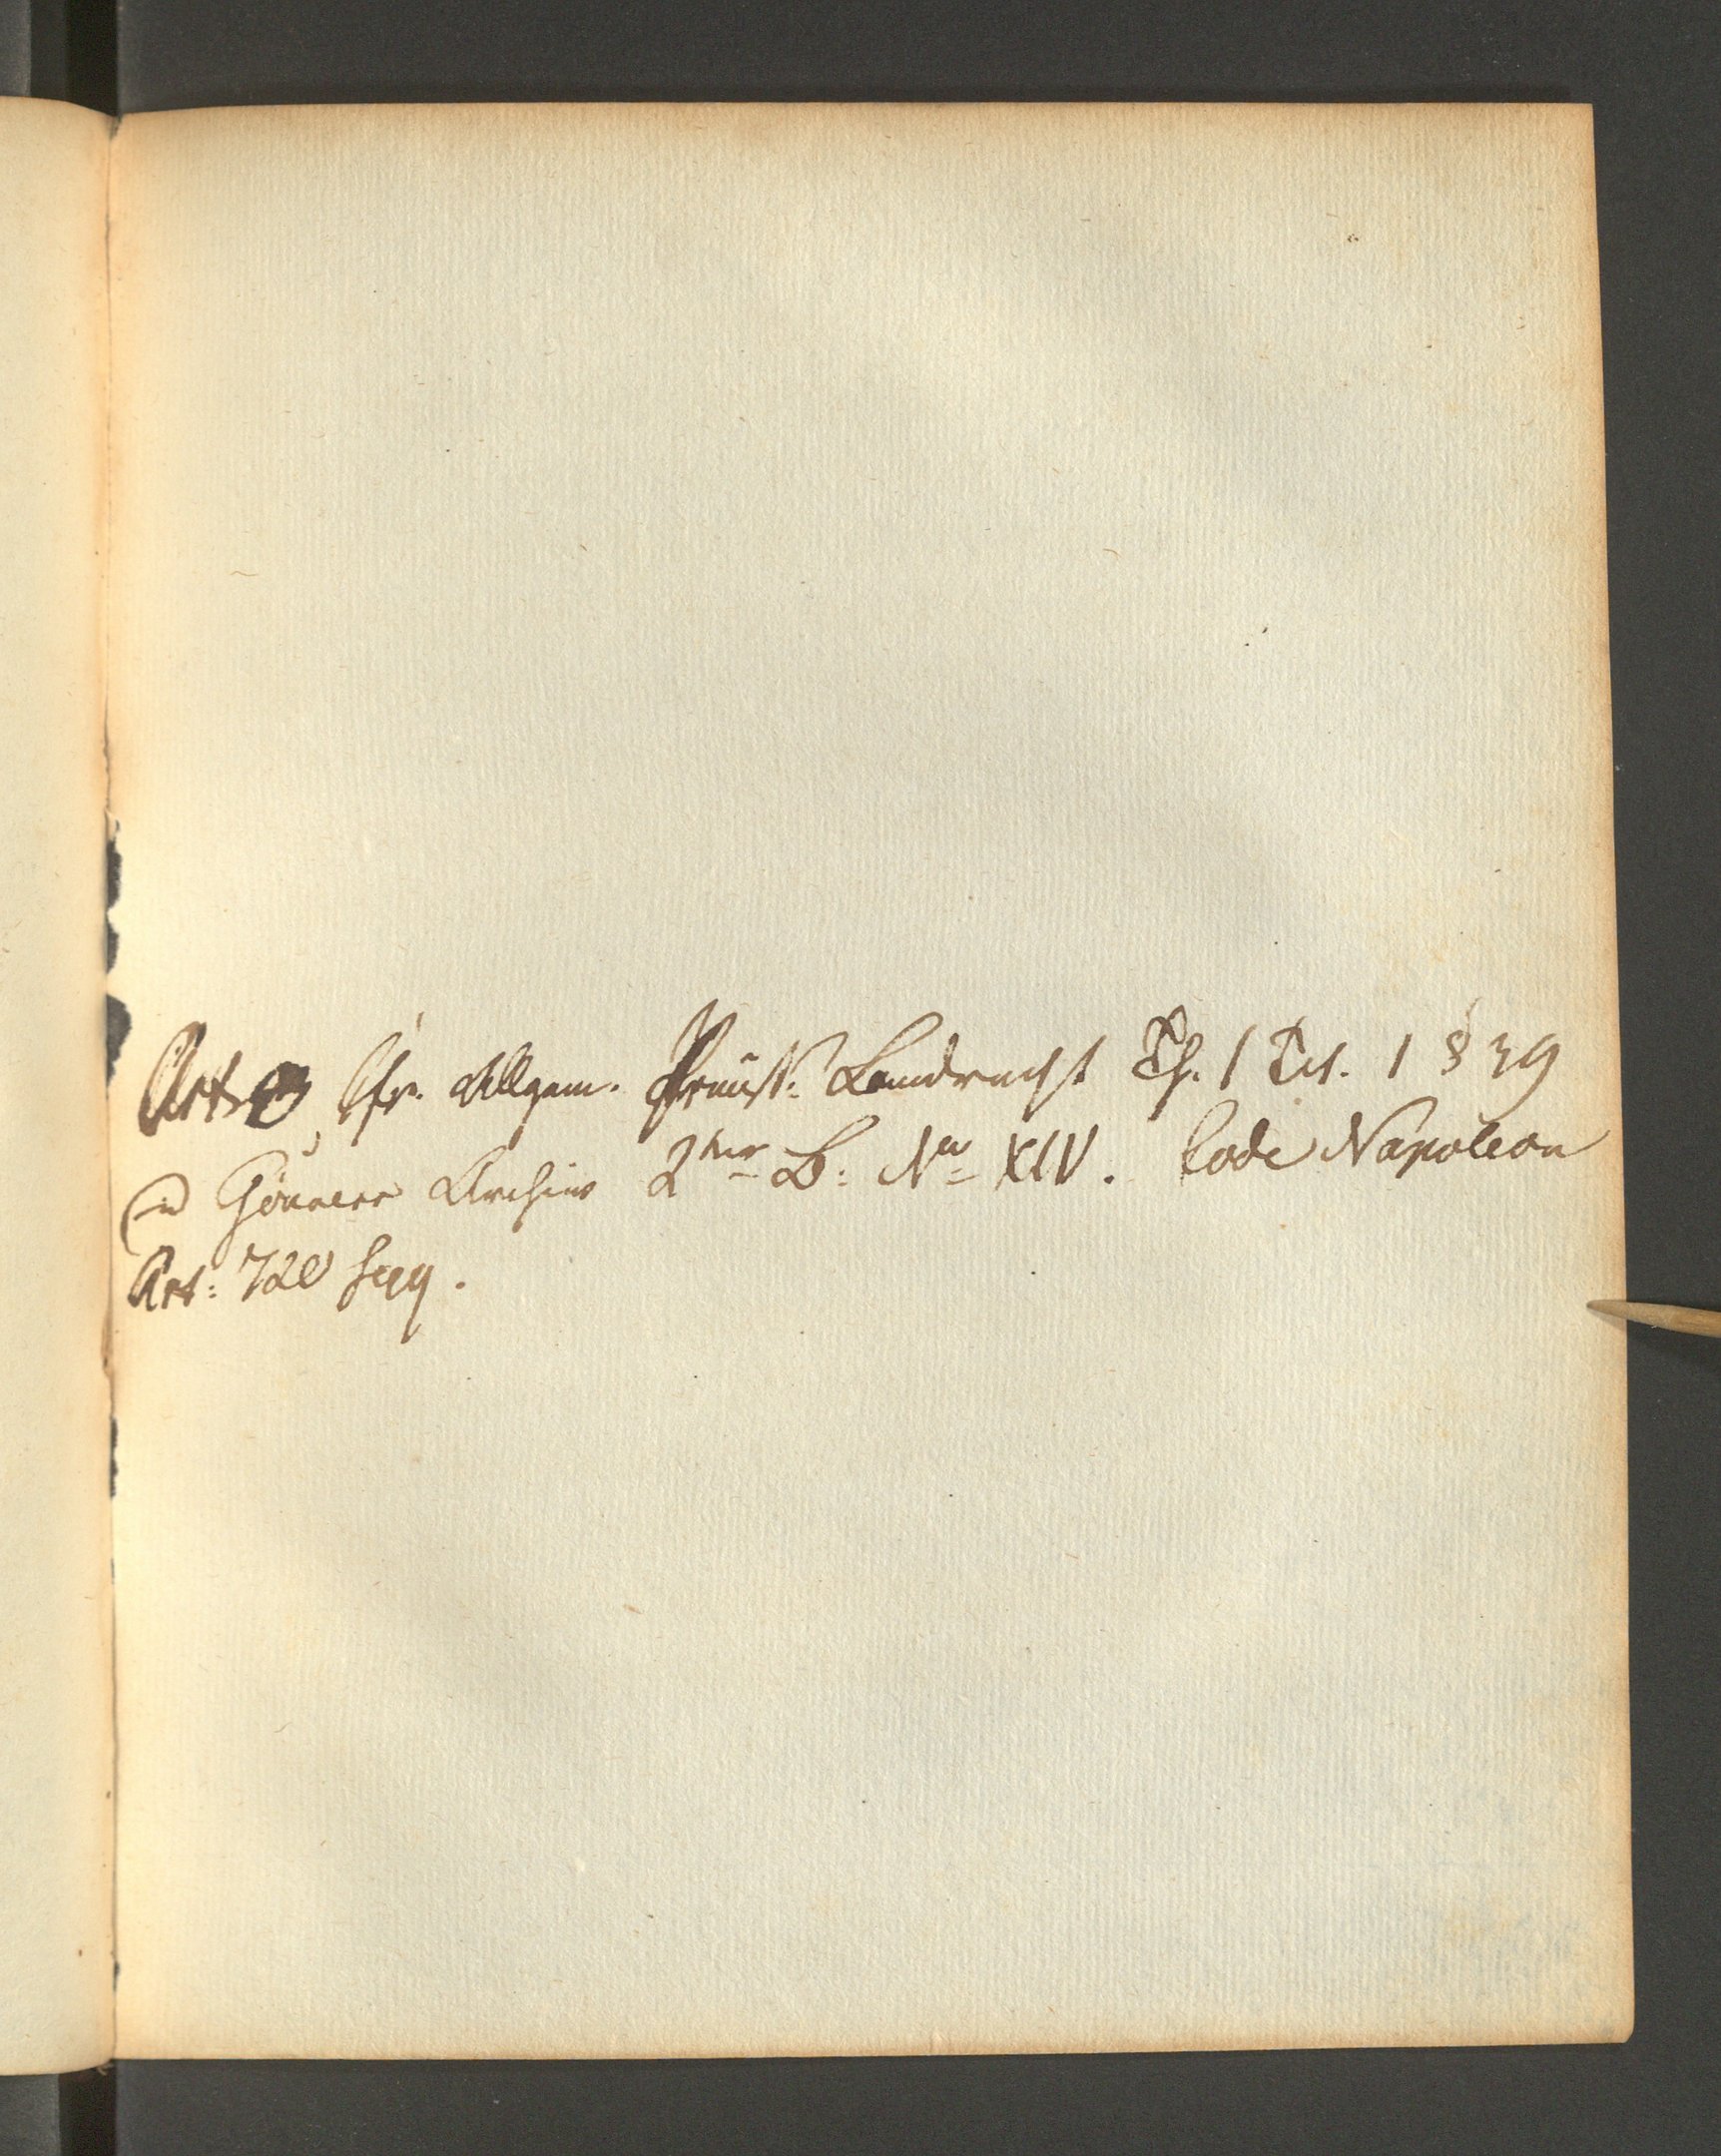 Art: Cfr. Allgem. Preuß: Landrecht Th. 1 Tit. 1 § 39
u Gönners Archiv 2ter B: No XIV. Code Napoleon
Art: 720 seqq.